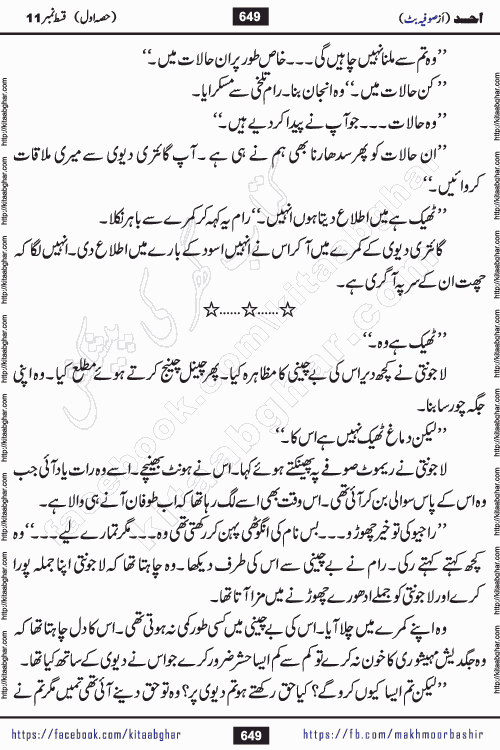 احد (از صوفیہ بٹ) 649 (حصہ اول) قسط نمبر 11
’’وہ تم سے ملنا نہیں چاہیں گی۔۔۔خاص طور پر ان حالات میں۔‘‘
’’کن حالات میں۔‘‘ وہ انجان بنا۔ رام تلخی سے مسکرایا۔
’’وہ حالات۔۔۔جو آپ نے پیدا کر دیے ہیں۔‘‘
’’ان حالات کو پھر سدھارنا بھی ہم نے ہی ہے۔ آپ گائتری دیوی سے میری ملاقات
کروائیں۔‘‘
’’ٹھیک ہے میں اطلاع دیتا ہوں انہیں۔‘‘ رام یہ کہہ کر کمرے سے باہر نکلا۔
گائتری دیوی کے کمرے میں آ کر اس نے انہیں اسود کے بارے میں اطلاع دی۔ انہیں لگا کہ
چھت ان کے سر پہ آ گری ہے۔
☆......☆......☆
’’ٹھیک ہے وہ۔‘‘
لاجونتی نے کچھ دیر اس کی بے چینی کا مظاہرہ کیا۔ پھر چینل چینج کرتے ہوئے مطلع کیا۔ وہ اپنی
جگہ چور سا بنا۔
’’لیکن دماغ ٹھیک نہیں ہے اس کا۔‘‘
لاجونتی نے ریموٹ صوفے پہ پھینکتے ہوئے کہا۔ اس نے ہونٹ بھینچے۔ اسے وہ رات یاد آئی جب
وہ اس کے پاس سوالی بن کر آئی تھی۔ اس وقت بھی اسے لگ رہا تھا کہ اب طوفان آنے ہی والا ہے۔
’’راجیو کی تو خیر چھوڑو۔۔۔بس نام کی انگوٹھی پہن کر رکھتی تھی وہ۔۔۔مگر تمہارے لیے۔۔۔‘‘ وہ
کچھ کہتے کہتے رکی۔ رام نے بے چینی سے اس کی طرف دیکھا۔ وہ چاہتا تھا کہ لاجونتی اپنا جملہ پورا
کرے اور لاجونتی کو جملے ادھورے چھوڑنے میں مزا آتا تھا۔
وہ اپنے کمرے میں چلا آیا۔ اس کی بے چینی میں کسی طور کمی نہ ہوتی تھی۔ اس کا دل چاہتا تھا کہ
وہ جگدیش مہیشوری کا خون نہ کرے تو کم سے کم ایسا حشر ضرور کرے جو اس نے دیوی کے ساتھ کیا تھا۔
’’لیکن تم ایسا کیوں کرو گے؟ کیا حق رکھتے ہو تم دیوی پر؟ وہ تو حق دینے آئی تھی تمہیں مگر تم نے
https://facebook.com/kitaabghar 649 https://fb.com/makhmoorbashir
http://kitaabghar.com
کتاب گھر کی پیشکش
facebook.com/kitaabghar
kitaabghar.com